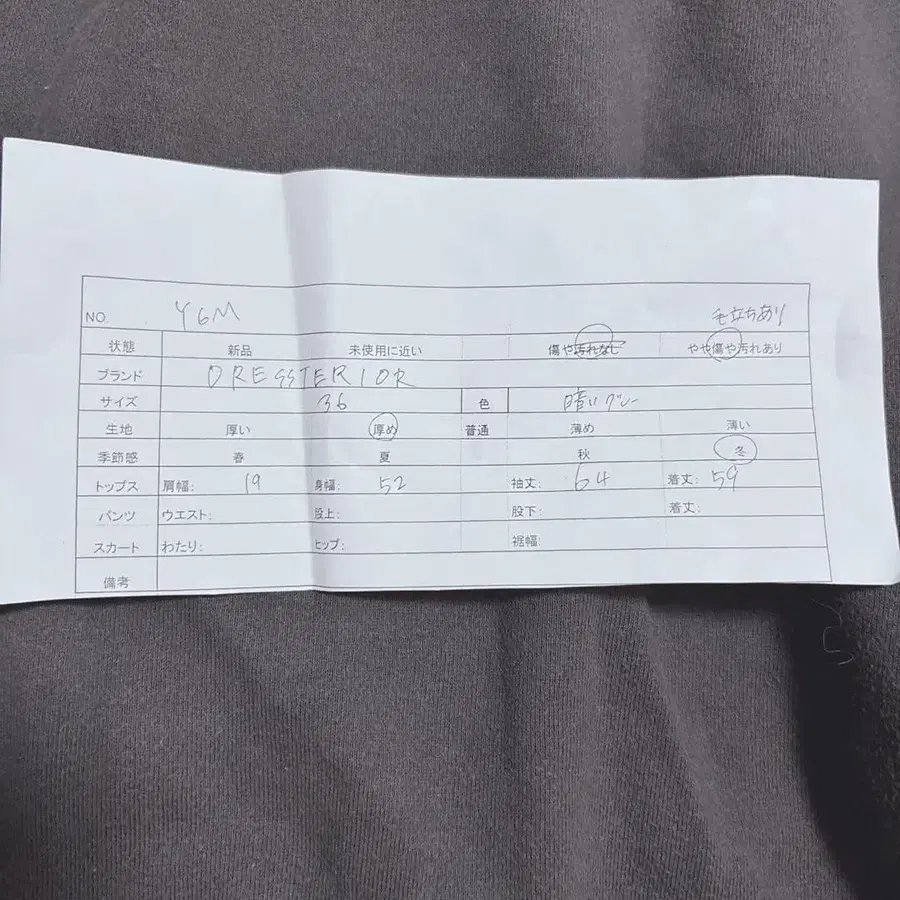 NO. Y6M 毛立ちあり
状態 新品 未使用に近い 傷や汚れなし やや傷や汚れあり
ブランド DRESSTERIOR
サイズ 36 色 暗いグレー
生地 厚い 厚め 普通 薄め 薄い
季節感 春 夏 秋 冬
トップス 肩幅: 19 身幅: 52 袖丈: 64 着丈: 59
パンツ ウエスト: 股上: 股下: 着丈:
スカート わたり: ヒップ: 裾幅:
備考